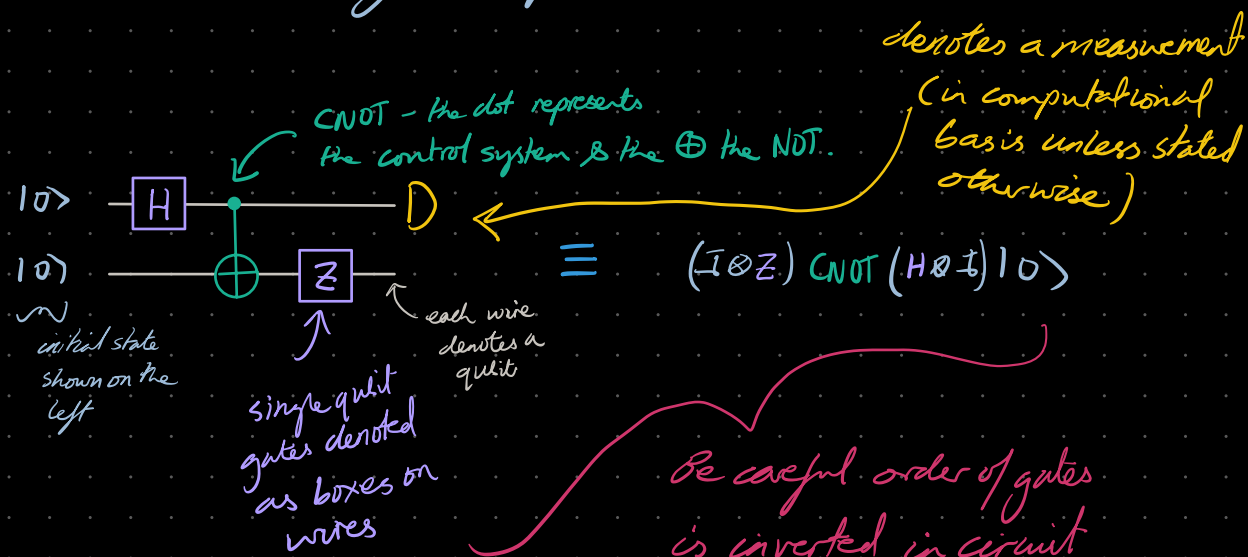 denotes a measurement
(in computational
basis unless stated
otherwise)
CNOT - the dot represents
the control system & the ⊕ the NOT.
|0> H D
|0> Z
≡ (I⊗Z) CNOT (H⊗I)|0>
initial state
shown on the
left
each wire
denotes a
qubit
single qubit
gates denoted
as boxes on
wires
Be careful order of gates
is inverted in circuit